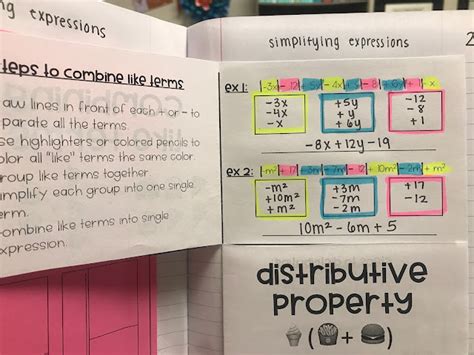 ng expressions
simplifying expressions
2
teps to combine like terms
aw lines in front of each + or - to
parate all the terms.
se highlighters or colored pencils to
olor all "like" terms the same color.
roup like terms together.
implify each group into one single
erm.
ombine like terms into single
xpression.
ex 1: |-3x|-12|+5y|-4x|+y|-8|+6y|+1|-x
-3x +5y -12
-4x +y -8
-x +6y +1
-8x + 12y - 19
ex 2: |-m²|+17|+3m|-7m|-12|+10m²|-2m|+m²
-m² +3m +17
+10m² -7m -12
+m² -2m
10m² - 6m + 5
distributive
property
( + )